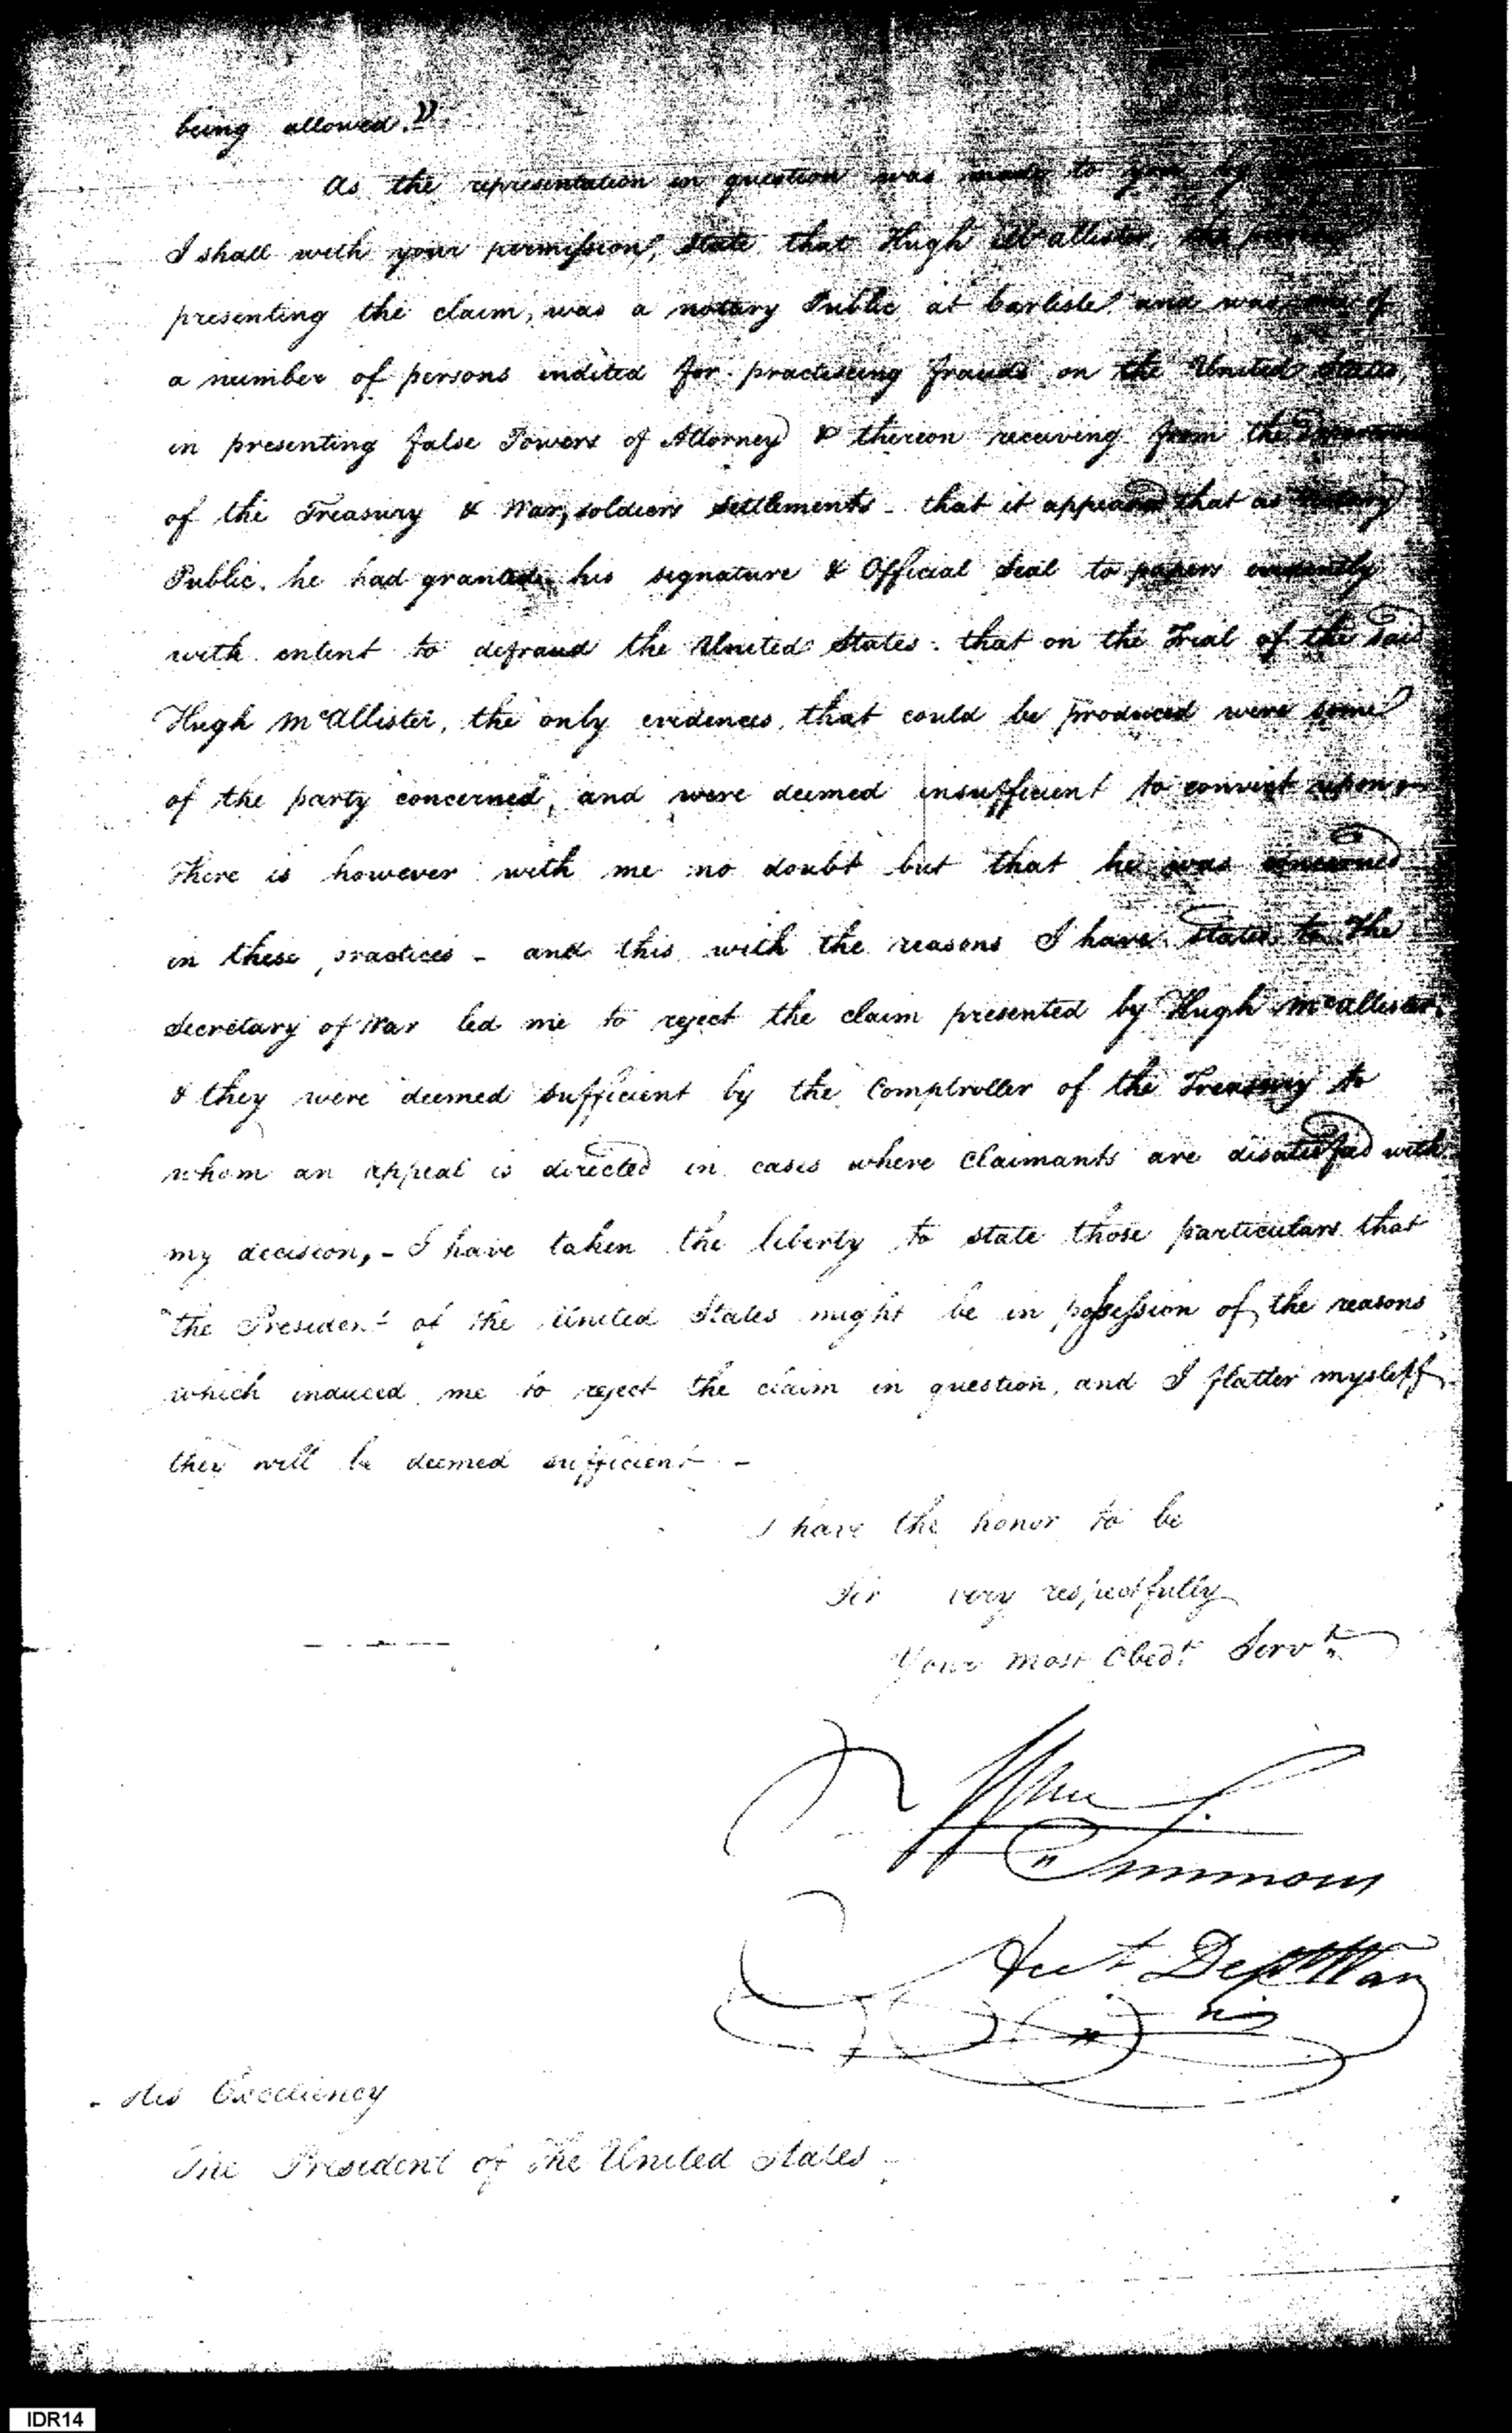 being allowed."
As the representation in question was made to you by
I shall with your permission, state that Hugh McAllister, the person
presenting the claim, was a notary Public at Carlisle and was one of
a number of persons indited for practiseing frauds on the United States,
in presenting false Powers of Attorney & thereon receiving from the
of the Treasury & War, soldiers settlements - that it appeared that as Notary
Public, he had granted his signature & Official Seal to papers evidently
with intent to defraud the United States. that on the Trial of the said
Hugh McAllister, the only evidences, that could be produced were some
of the party concerned, and were deemed insufficient to convict upon
There is however with me no doubt but that he was concerned
in these practices - and this with the reasons I have stated to the
Secretary of War led me to reject the claim presented by Hugh McAllister.
& they were deemed sufficient by the Comptroller of the Treasury to
whom an appeal is directed in cases where Claimants are disatisfied with
my decision, - I have taken the liberty to state those particulars that
the President of the United States might be in possession of the reasons
which induced me to reject the claim in question, and I flatter myself
they will be deemed sufficient -
I have the honor to be
Sir very respectfully
Your most Obedt. Servt.
Wm Simmons
Acct Dept War
His Excellency
The President of the United States -
IDR14